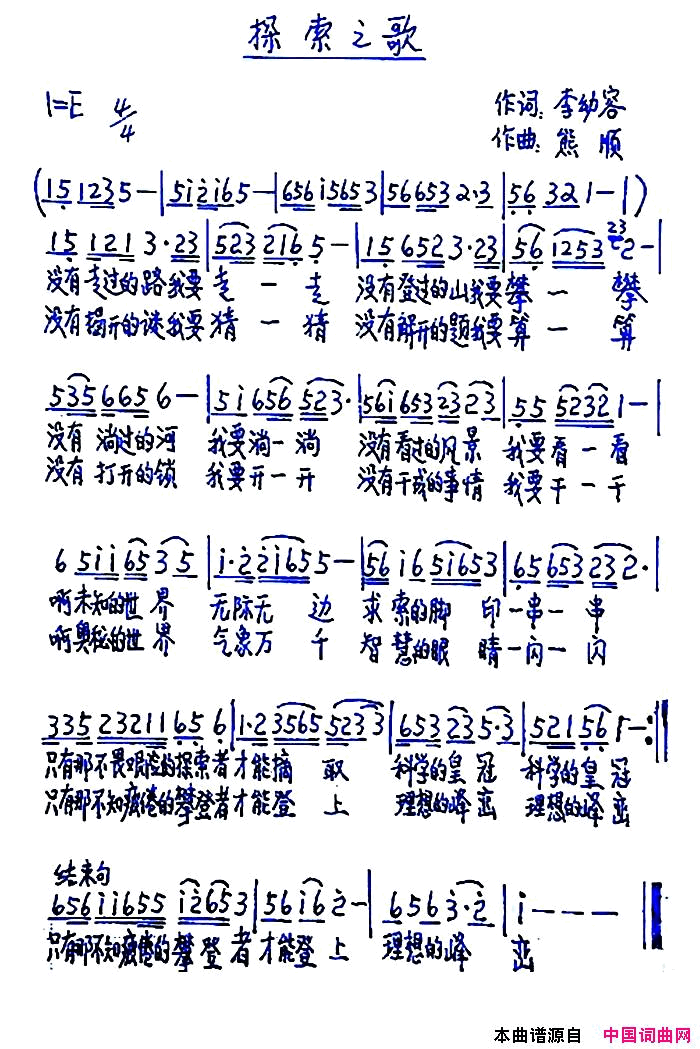 探索之歌
1=E 4/4
作词:李幼容
作曲:熊顺
(15 1235-|5i2i65-|656i5653|566532·3|56 321-|)
15 1213·23|523 2165-|15 6523·23|56 1253 23 2-|
没有走过的路我要走一走 没有登过的山我要攀一攀
没有揭开的谜我要猜一猜 没有解开的题我要算一算
535 6656-|5i656 523·|56i653 23 23|55 52321-|
没有淌过的河 我要淌一淌 没有看过的风景 我要看一看
没有打开的锁 我要开一开 没有干成的事情 我要干一干
6 5ii65 35|i·2 2i655-|56 i6 5i653|65 653 232·|
啊未知的世界 无际无边 求索的脚印一串一串
啊奥秘的世界 气象万千 智慧的眼睛一闪一闪
335 23211 656|1·2 3565 5233|653 235·3|521561-:||
只有那不畏艰险的探索者才能摘取 科学的皇冠 科学的皇冠
只有那不知疲倦的攀登者才能登上 理想的峰峦 理想的峰峦
结束句
656ii655 i2653|56i62-|6563·2|i---||
只有那不知疲倦的攀登者才能登上 理想的峰峦
本曲谱源自 中国词曲网